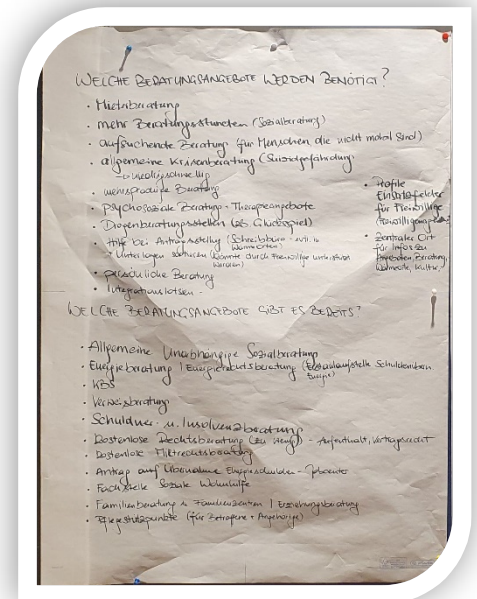 WELCHE BERATUNGSANGEBOTE WERDEN BENÖTIGT?
• Mietenberatung
• mehr Beratungsstunden (Sozialberatung)
• aufsuchende Beratung (für Menschen die nicht mobil sind)
• allgemeine Krisenberatung (Suizidgefährdung
• mehrsprachige Beratung
• Psychosoziale Beratung + Therapieangebote
• Drogenberatungsstellen (zB Glücksspiel)
• Hilfe bei Antragsstellung (Schreibbüro
+ Unterlagen sortieren (könnte durch Freiwillige unterstützt
werden)
• persönliche Beratung
• Integrationslotsen -
• Profile
Einsatzfelder
für Freiwillige
• Zentraler Ort
für Infos zu
Angeboten Beratung,
WELCHE BERATUNGSANGEBOTE GIBT ES BEREITS?
• Allgemeine Unabhängige Sozialberatung
• Energieberatung | Energierechtsberatung (Erstanlaufstelle Schuldnerber.
Energie)
• KBS
• Verweisberatung
• Schuldner- u. Insolvenzberatung
• kostenlose Rechtsberatung (zu wenig) - Aufenthalt, Vertragsrecht
• kostenlose Mietrechtsberatung
• Antrag auf Übernahme Energieschulden - Jobcenter
• Fachstelle Soziale Wohnhilfe
• Familienberatung in Familienzentren | Erziehungsberatung
• Pflegestützpunkte (für Betroffene + Angehörige)